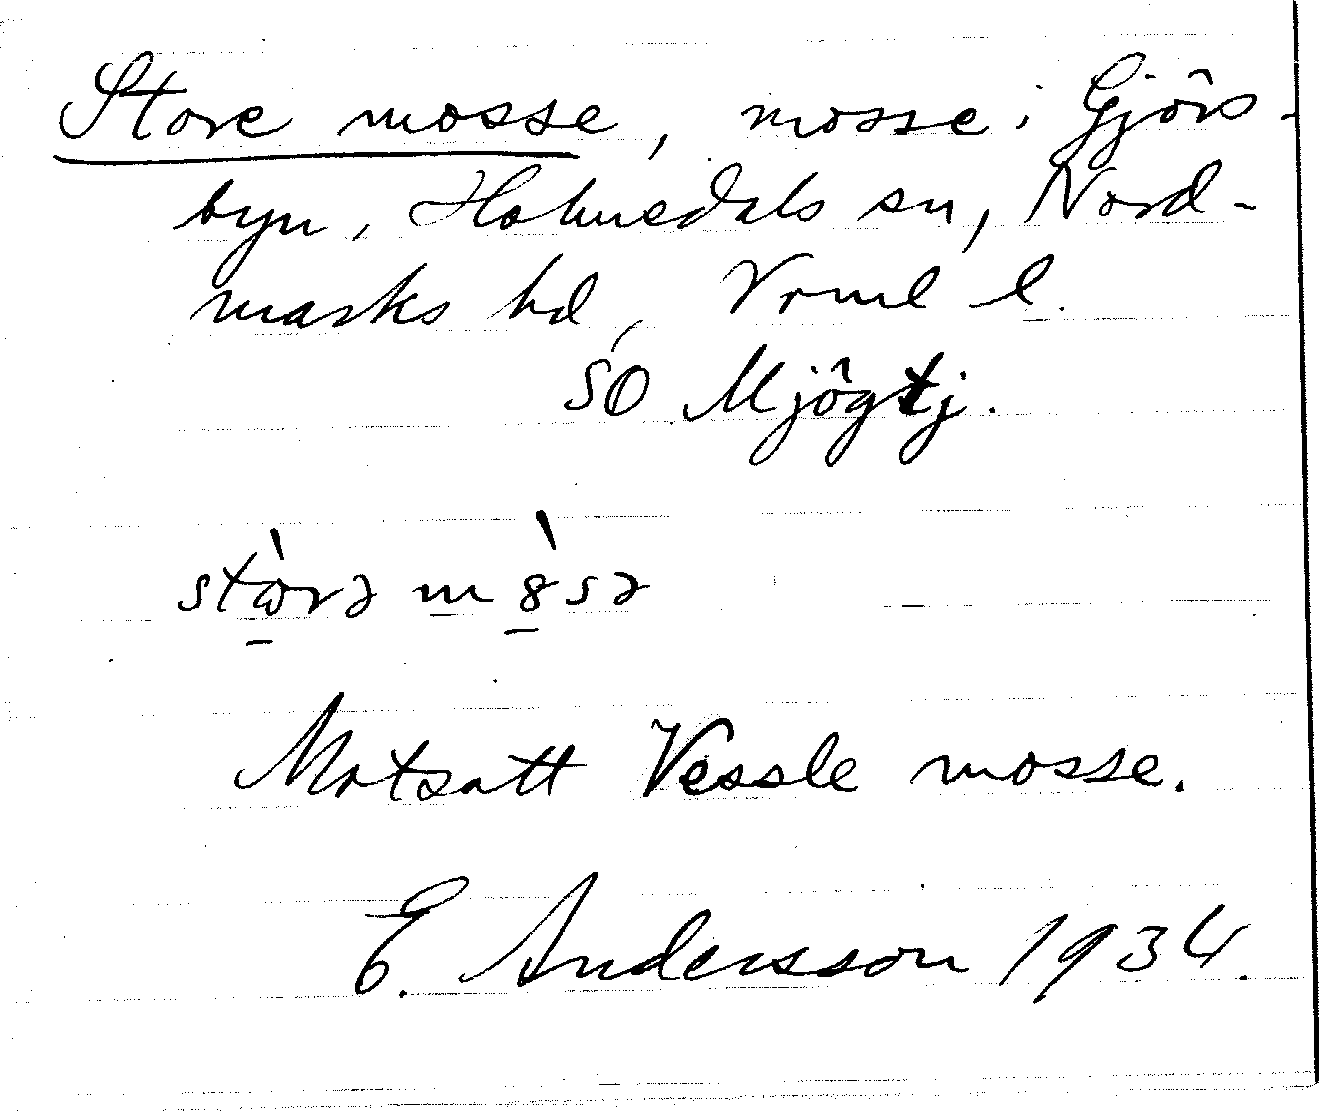 Store mosse, mosse i Gjörs-
byn, Holmedals sn, Nord-
marks hd, Vrml l.
SO Mjögtj.
stɷ̀rə m8̀sə
Motsatt Vessle mosse.
E. Andersson 1934.